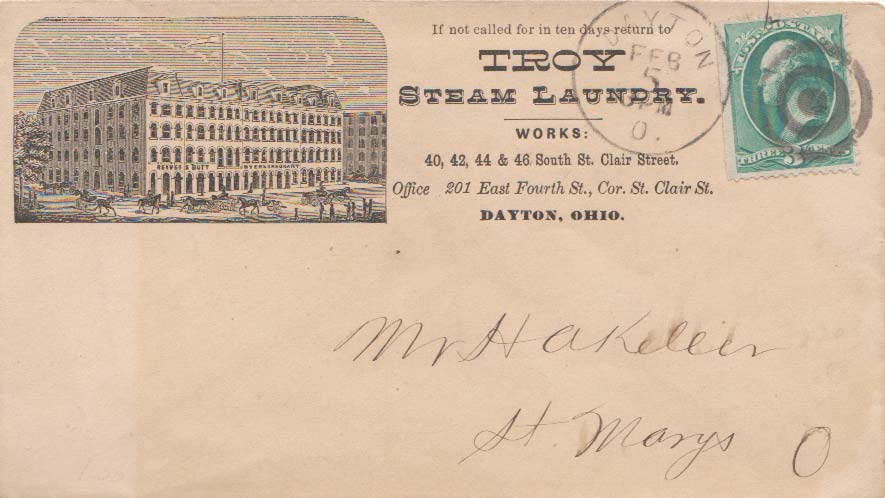 If not called for in ten days return to
TROY
STEAM LAUNDRY.
WORKS:
40, 42, 44 & 46 South St. Clair Street.
Office 201 East Fourth St., Cor. St. Clair St.
DAYTON, OHIO.
DAYTON
FEB
5
O.
U.S. POSTAGE
THREE
3
Mr H A Keller
St. Marys O